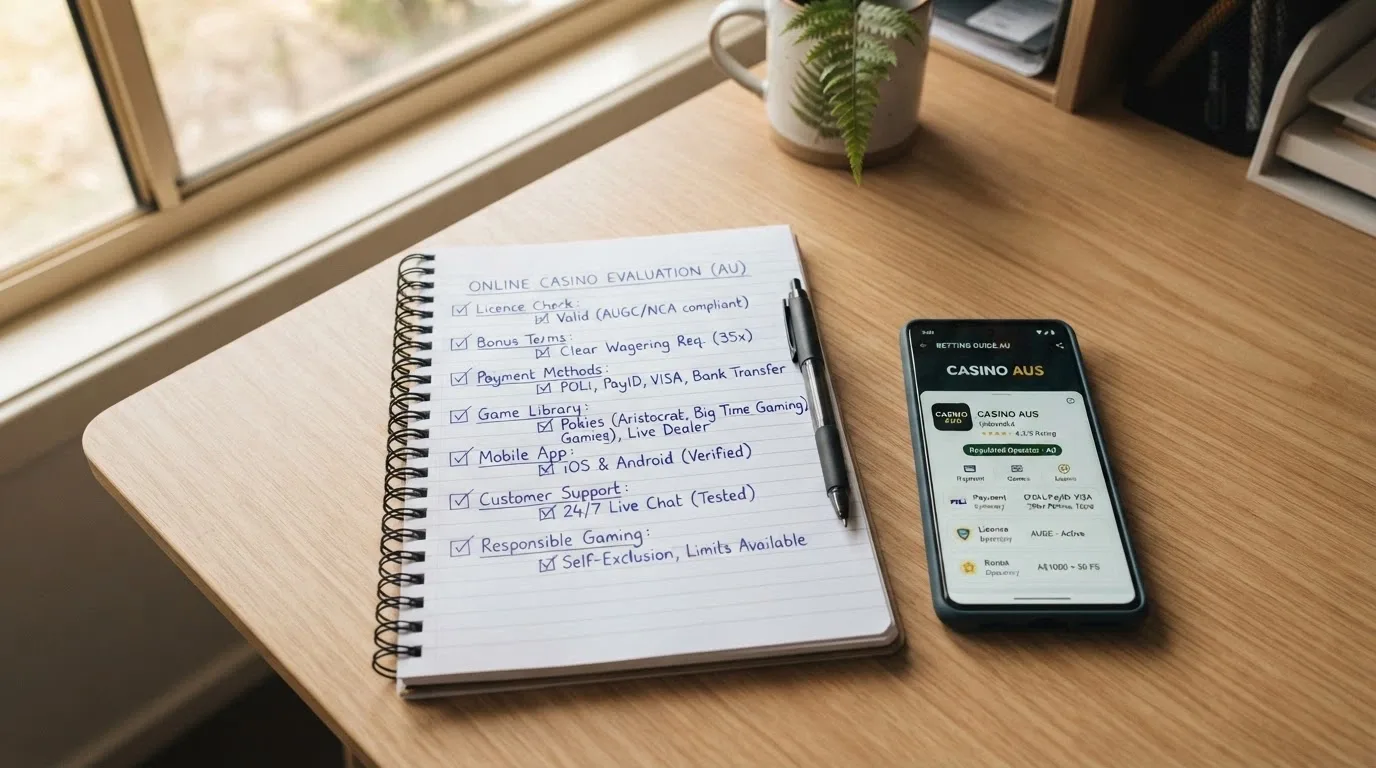 ONLINE CASINO EVALUATION (AU)
Licence Check:
Valid (AUGC/NCA compliant)
Bonus Terms:
Clear Wagering Req. (35x)
Payment Methods:
POLI, PayID, VISA, Bank Transfer
Game Library:
Pokies (Aristocrat, Big Time Gaming,
Games), Live Dealer
Mobile App:
iOS & Android (Verified)
Customer Support:
24/7 Live Chat (Tested)
Responsible Gaming:
Self-Exclusion, Limits Available
BETTING GUIDE AU
CASINO AUS
CASINO
AUS
CASINO AUS
Rating
Regulated Operator - AU
Payment
Games
Payment
VISA
License
Active
A$1000 - 50 FS